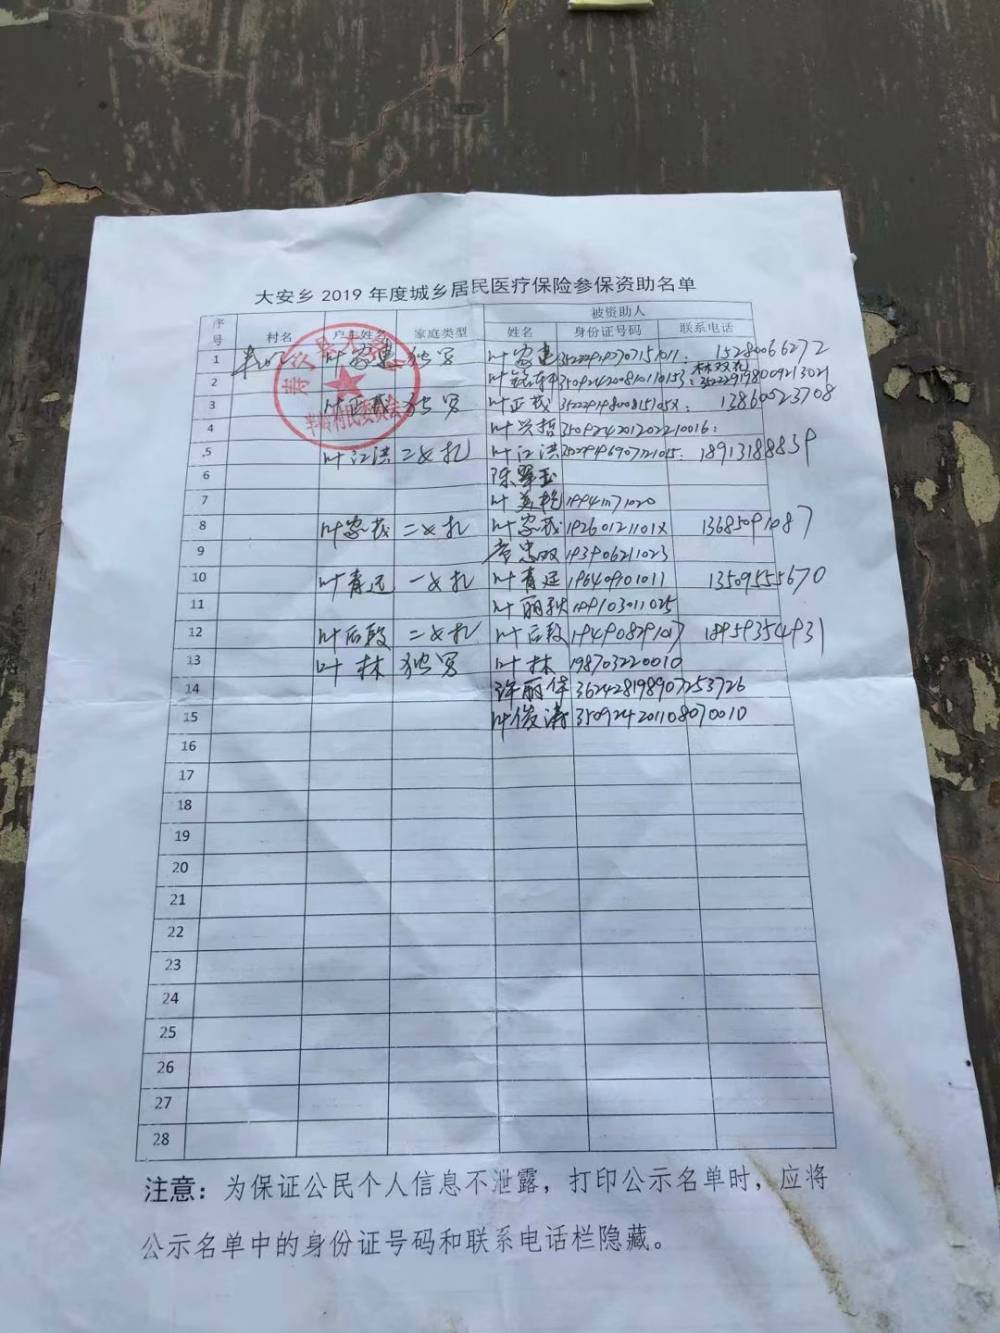 大安乡 2019 年度城乡居民医疗保险参保资助名单
序号 村名 户主姓名 家庭类型 被资助人
姓名 身份证号码 联系电话
1 叶家建 独男 叶家建 15280066272
2 350924200810110153 352229198009213021
3 叶正茂 独男 叶正茂 35222919800815105X 13860523708
4 叶兴哲 350924201202210016
5 叶江洪 二女扎 叶江洪 18913188839
6
7 叶美艳 19941171020
8 叶家茂 二女扎 叶家茂 19260121101X 13685091087
9 193906211023
10 叶青运 一女扎 叶青运 196409101011 13509555670
11 199103011025
12 叶后段 二女扎 叶后段 194908291017 18959354931
13 叶林 独男 叶林 198703220010
14 许丽保 362428198907253726
15 叶俊涛 350924201108070010
16
17
18
19
20
21
22
23
24
25
26
27
28
注意：为保证公民个人信息不泄露，打印公示名单时，应将
公示名单中的身份证号码和联系电话栏隐藏。